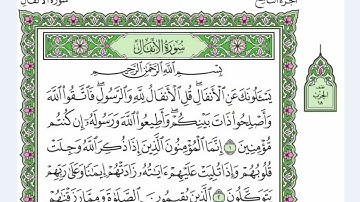 سورة الأنفال
الجزء التاسع
سُورَةُ الأَنفَالِ
بِسْمِ اللَّهِ الرَّحْمَٰنِ الرَّحِيمِ
يَسْـَٔلُونَكَ عَنِ ٱلْأَنفَالِ ۖ قُلِ ٱلْأَنفَالُ لِلَّهِ وَٱلرَّسُولِ ۖ فَٱتَّقُوا۟ ٱللَّهَ
وَأَصْلِحُوا۟ ذَاتَ بَيْنِكُمْ ۖ وَأَطِيعُوا۟ ٱللَّهَ وَرَسُولَهُۥٓ إِن كُنتُم
مُّؤْمِنِينَ ١ إِنَّمَا ٱلْمُؤْمِنُونَ ٱلَّذِينَ إِذَا ذُكِرَ ٱللَّهُ وَجِلَتْ
قُلُوبُهُمْ وَإِذَا تُلِيَتْ عَلَيْهِمْ ءَايَٰتُهُۥ زَادَتْهُمْ إِيمَٰنًا وَعَلَىٰ رَبِّهِمْ
يَتَوَكَّلُونَ ٢ ٱلَّذِينَ يُقِيمُونَ ٱلصَّلَوٰةَ وَمِمَّا رَزَقْنَٰهُمْ
الحزب
١٨